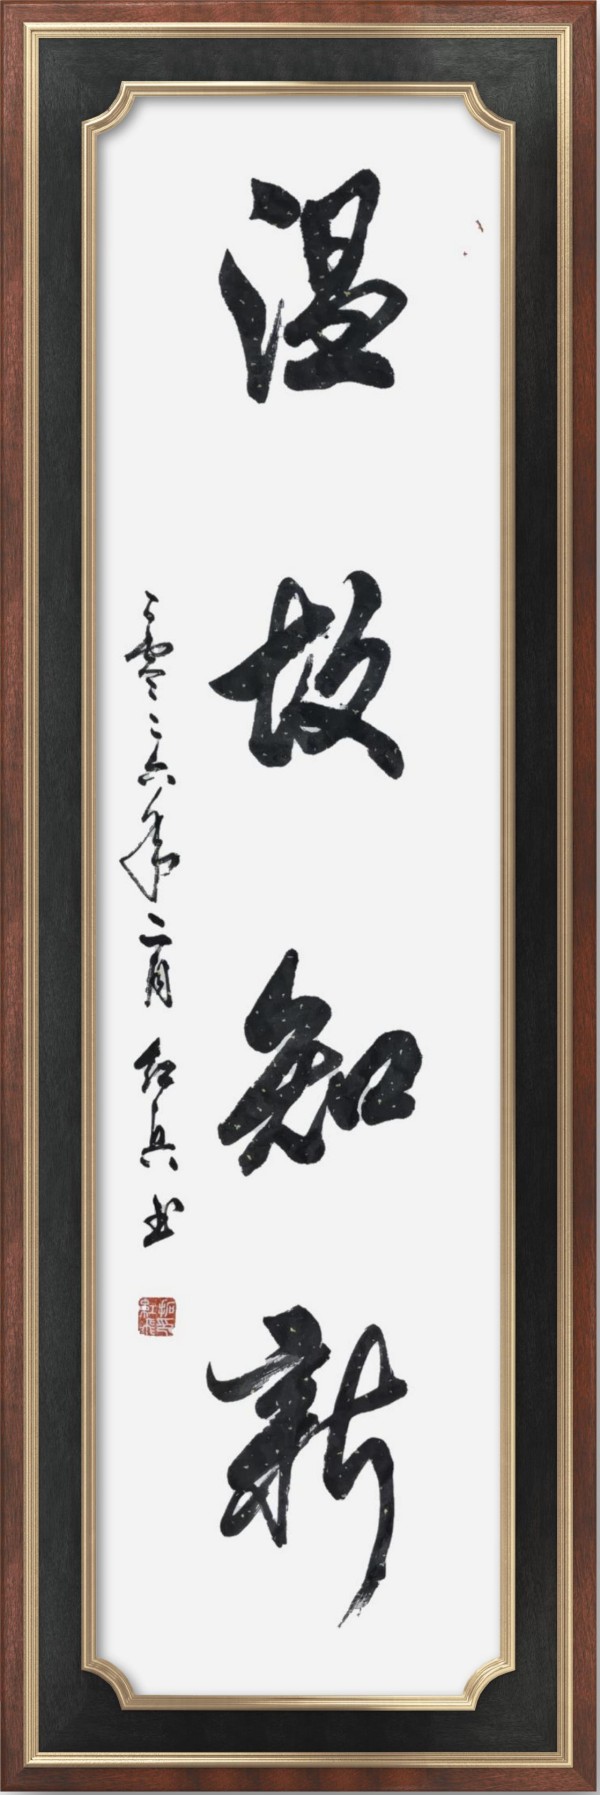 温故知新
二零二六年二月 红兵书